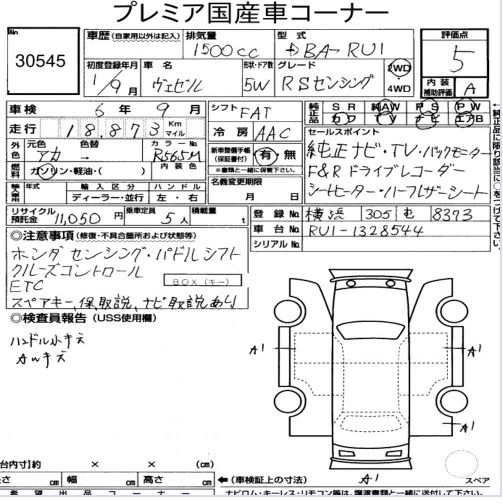 プレミア国産車コーナー
No 30545
車歴 (自家用以外は記入) 排気量 1500cc 型式 DBA-RU1 評価点 5
初度登録年月 1/9月 車名 ヴェゼル 形状・ドア数 5W グレード RSセンシング 2WD 4WD 内装補助評価 A
車検 6年 9月 シフト FAT 純正品 SR 純AW PS PW
カワ TV ナビ エアB
走行 18,873 Km マイル 冷房 AAC セールスポイント
外色 元色 アカ 色替 カラーNo R565M 新車整備手帳(保証書付) 有・無 純正ナビ・TV・バックモニター
燃料 ガソリン・軽油・( ) 内装色 ※書類と一緒に保管して下さい。 F&Rドライブレコーダー
輸入車 年式 輸入区分 ハンドル 名義変更期限 シートヒーター・ハーフレザーシート
年 ディーラー・並行 左・右 月 日
リサイクル預託金 11,050円 乗車定員 5人 積載量 t 登録No 横浜 305 む 8373
◎注意事項 (修復・不具合箇所および状態等) 車台No RU1-1328544
シリアルNo
ホンダセンシング・パドルシフト
クルーズコントロール
ETC BOX(キー)
スペアキー、保、取説、ナビ取説あり
◎検査員報告 (USS使用欄)
ハンドル小キズ
AWキズ
A1
A1
A1
A1
スペア
台内寸)約 × × (cm)
長さ (cm) 幅 (cm) 高さ (cm) ←(車検証上の寸法)
希望出品コーナー